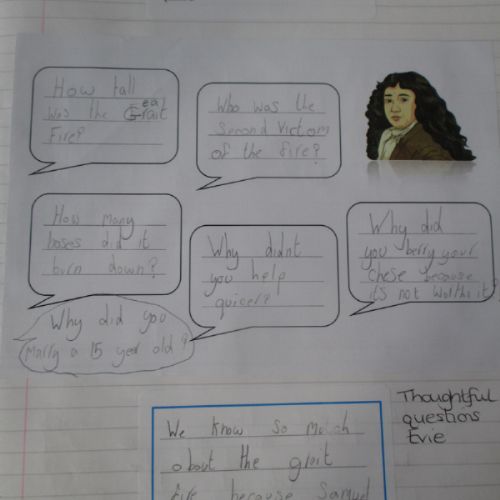 How tall
was the Great
Fire?
Who was the
Second Victom
of the fire?
How many
hoses did it
burn down?
Why didnt
you help
quicer?
Why did
you berry your
chese because
it's not worths it?
Why did you
marry a 15 year old?
Thoughtful
questions
Evie
We know so much
about the grait
fire because Samuel